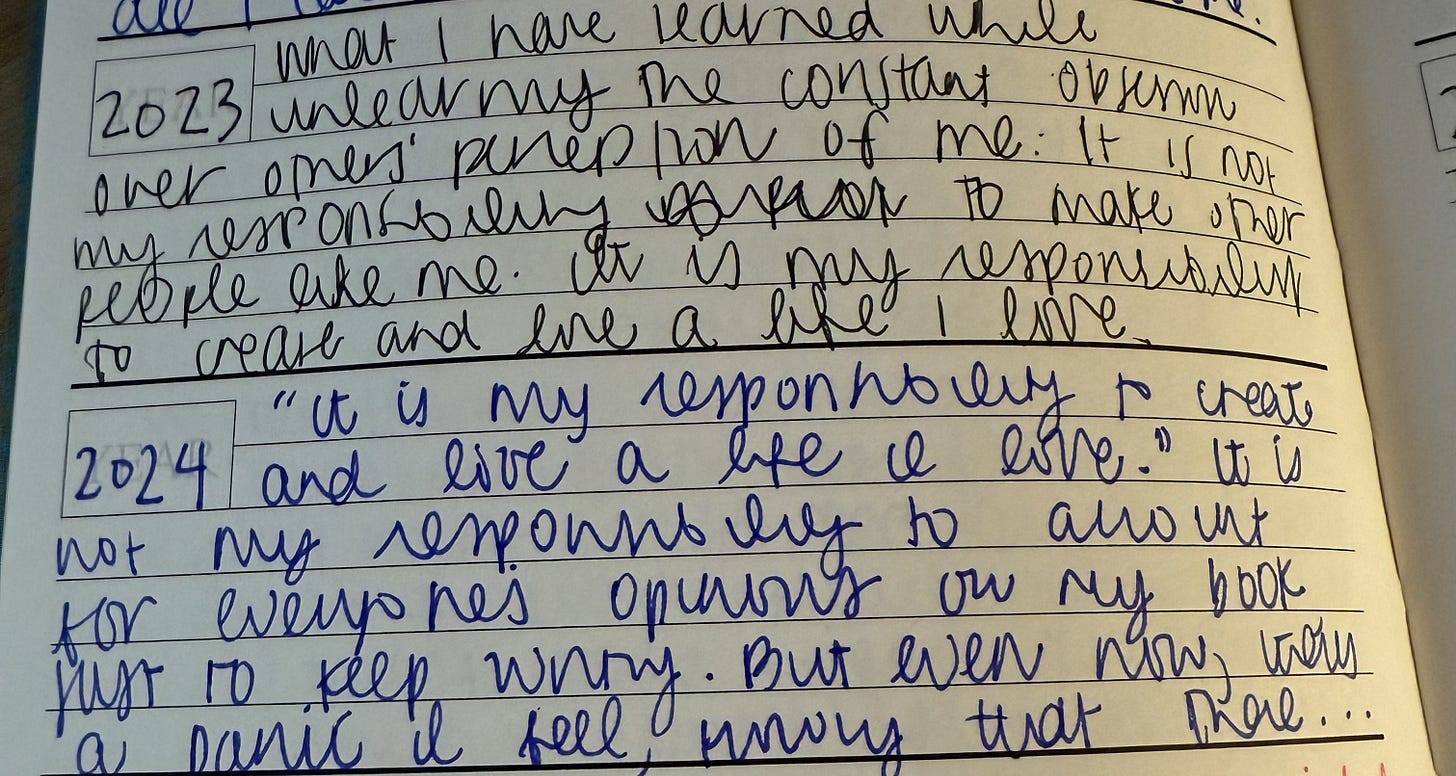 all I
What I have learned while
2023 unlearning the constant obsession
over others' perception of me: It is not
my responsibility to make other
people like me. It is my responsibility
to create and live a life I love.
"It is my responsibility to create
2024 and live a life I love." It is
not my responsibility to account
for everyone's opinions on my book
just to keep writing. But even now,
a panic I feel, knowing that there...